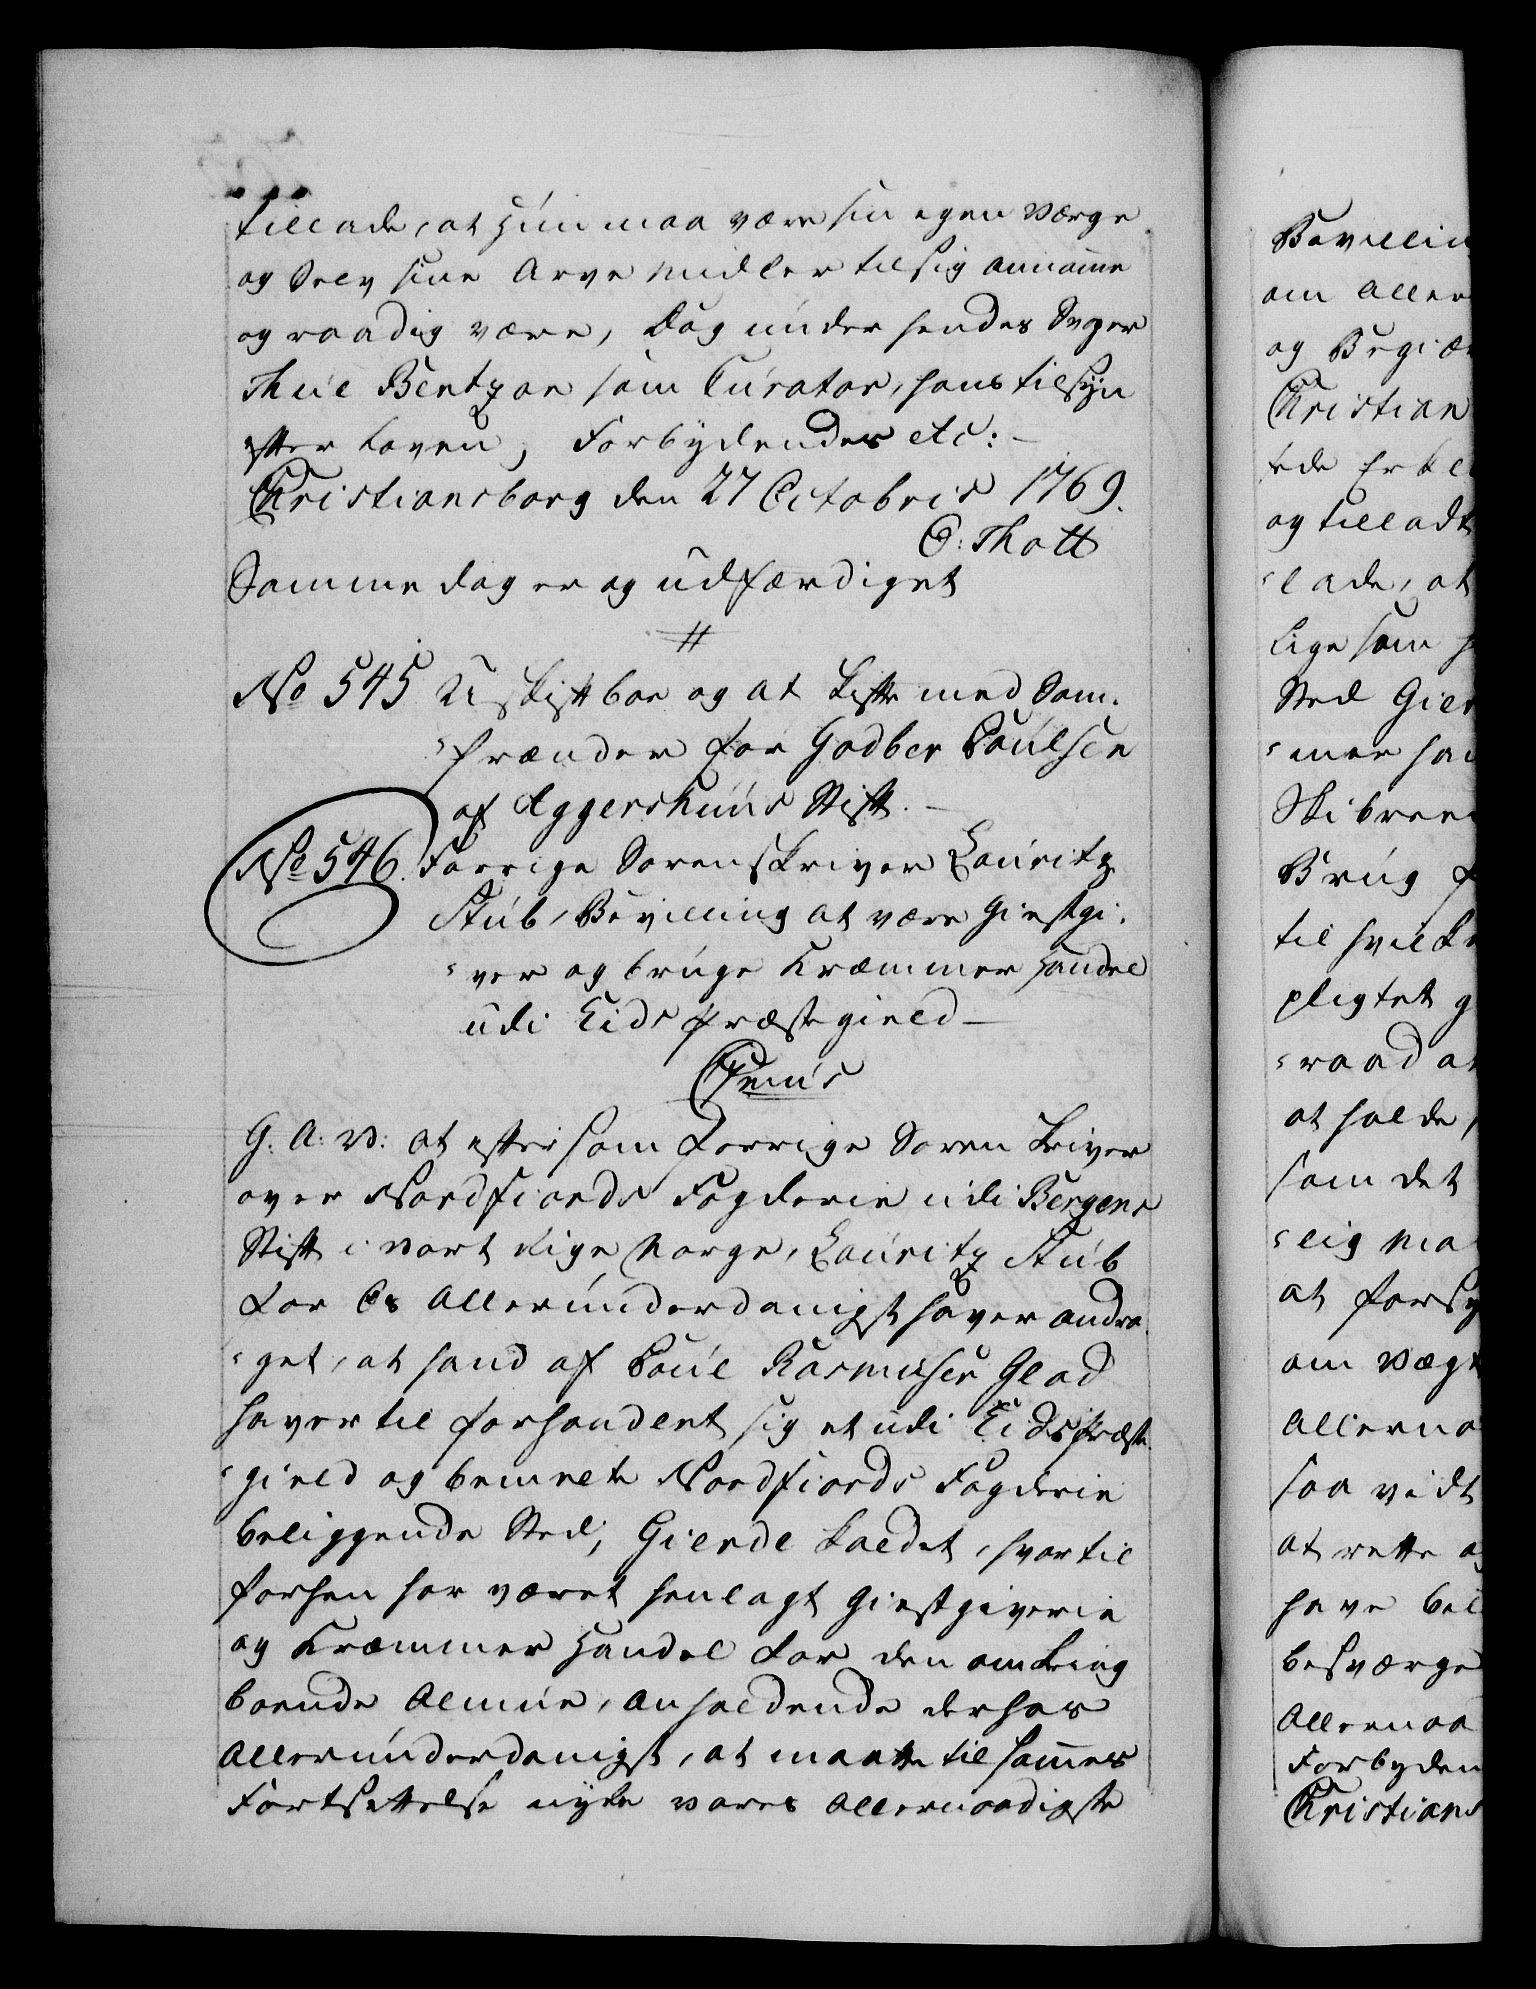 tillade, at Hun maa være sin egen Værge
og Selv sine Arve Midler til sig annamme
og raadig være, dog under hendes Svoger
Thue Bentzon som Curator, hans tilsyn
efter Loven, Forbydendes etc:
Christiansborg den 27 Octobris 1769.
O: Thott
Samme dag er og udfærdiget
No 545 Uskiftboe og at skifte med Sam-
frænder for Godber Poulsen
af Aggershuus Stift.
No 546. Forrige Sorenskriver Lauritz
Stub, Bevilling at være Giestgi-
ver og bruge Kræmmer Handel
udi Eids Præstegield
Genus
G. A: V: at eftersom Forrige Soren skriver
over Nordfiords Fogderie udi Bergens
Stift i vort Rige Norge, Lauritz Stub
for Os Allerunderdanigst haver andra-
get, at hand af Poul Rasmusen Glad
haver til forhandlet sig et udi Eids Præste-
gield og bemelte Nordfiords Fogderie
beliggende Sted, Gierde kaldet, hvortil
forhen har været henlagt Giestgiverie
og Kræmmer Handel for den omkring
boende Almue, anholdende derhos
allerunderdanigst, at maatte til sammes
Fortsættelse nyde vores allernaadigste
Bevillin
om aller
og Begiæ
Christian
og tilladt
lade, at
lige som
Sted Gier
Brug
til hvilke
pligtet g
raad at
at holde,
som det
at forsy
om Vægt
Allerna
saa vidt
at rette
have
besværge
Allernaa
Forbyden
Christians